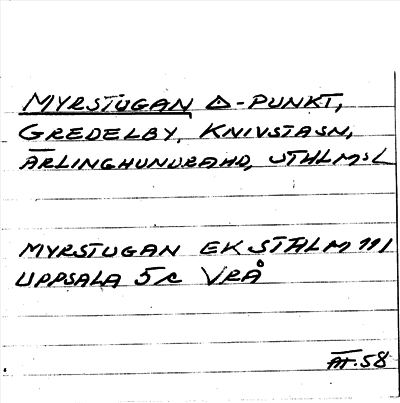 MYRSTUGAN Δ-PUNKT,
GREDELBY, KNIVSTA SN,
ÄRLINGHUNDRA HD, STHLMS L
MYRSTUGAN EK STHLM 111
UPPSALA 5R VRÅ
ÅT. 58